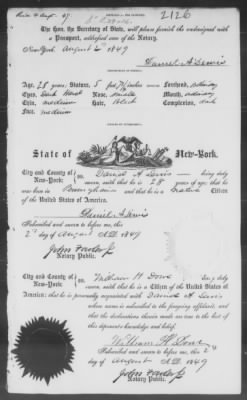 2126
The Hon. the Secretary of State, will please furnish the undersigned with
a Passport, addressed care of the Notary.
New-York, August 2d 1849
Daniel A Lewis
Age, 28 years Stature, 5 feet
Forehead, ordinary
Eyes, Dark Hazel Nose, Mouth, ordinary
Chin, medium Hair, Black Complexion, dark
Face, medium
State of New-York.
City and County of
New-York:
Daniel A Lewis being duly
sworn, saith that he is 28 years of age; that he
was born in and is a Native Citizen
of the United States of America.
Daniel A Lewis
Subscribed and sworn to before me, this
2d day of August AD 1849
John
Notary Public.
City and County of
New-York:
William H Dowe being duly
sworn, saith that he is a Citizen of the United States of
America; that he is personally acquainted with Daniel A Lewis
who subscribed to the foregoing affidavit, and
that the declarations therein made are true to the best of
this deponent's knowledge and belief.
William H Dowe
Subscribed and sworn to before me, this 2d
day of August AD 1849
John
Notary Public.